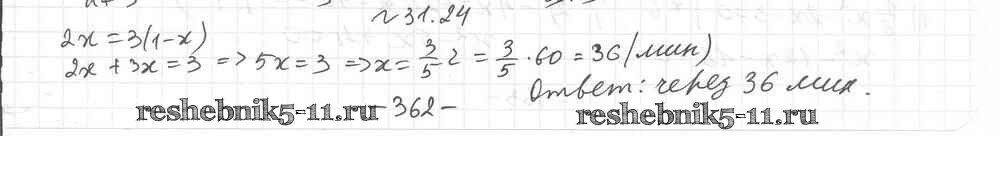 №31.24
2x = 3(1-x)
2x + 3x = 3 => 5x = 3 => x = 3/5 г = 3/5 · 60 = 36 (мин)
Ответ: через 36 мин.
reshebnik5-11.ru - 362 - reshebnik5-11.ru